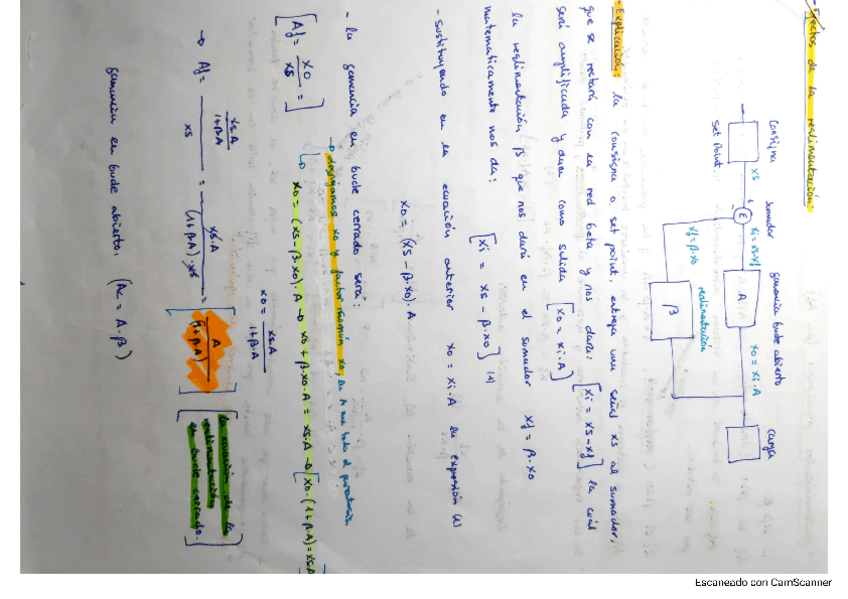 - Efectos de la realimentación:
Consigna
Set Point.
sumador
ganancia bucle abierto
carga
xs
+
-
E
xi = xs-xf
A
xo = xi·A
xf = β·xo
realimentación
β
- Explicación: la consigna o set point, entrega una señal xs al sumador,
que se restará con la red beta y nos dará: [xi = xs-xf] la cuál
será amplificada y dará como salida [xo = xi·A]
la realimentación β que nos dará en el sumador xf = β·xo
matematicamente nos da: [xi = xs - β·xo] (1)
- Sustituyendo en la ecuación anterior xo = xi·A la expresión (1)
xo = (xs - β·xo)·A
- la ganancia en bucle cerrado será:
→ despejamos xo y factor común xo, la A
[Af = xo/xs =]
xo = (xs-β·xo)·A → xo + β·xo·A = xs·A → [xo·(1+β·A) = xs·A
xo = xs·A / 1+β·A
→ Af = (xs·A / 1+β·A) / xs = xs·A / (1+β·A)·xs = [A / (1+β·A)] [la ecuación de la realimentación en bucle cerrado.]
ganancia en bucle abierto: (Ac = A·β)
Escaneado con CamScanner